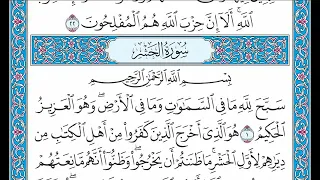 ٱللَّهِ أَلَآ إِنَّ حِزْبَ ٱللَّهِ هُمُ ٱلْمُفْلِحُونَ ٢٢
سُورَةُ الحَشْرِ
بِسْمِ ٱللَّهِ ٱلرَّحْمَٰنِ ٱلرَّحِيمِ
سَبَّحَ لِلَّهِ مَا فِى ٱلسَّمَٰوَٰتِ وَمَا فِى ٱلْأَرْضِ ۖ وَهُوَ ٱلْعَزِيزُ
ٱلْحَكِيمُ ١ هُوَ ٱلَّذِىٓ أَخْرَجَ ٱلَّذِينَ كَفَرُوا۟ مِنْ أَهْلِ ٱلْكِتَٰبِ مِن
دِيَٰرِهِمْ لِأَوَّلِ ٱلْحَشْرِ ۚ مَا ظَنَنتُمْ أَن يَخْرُجُوا۟ ۖ وَظَنُّوٓا۟ أَنَّهُم مَّانِعَتُهُمْ